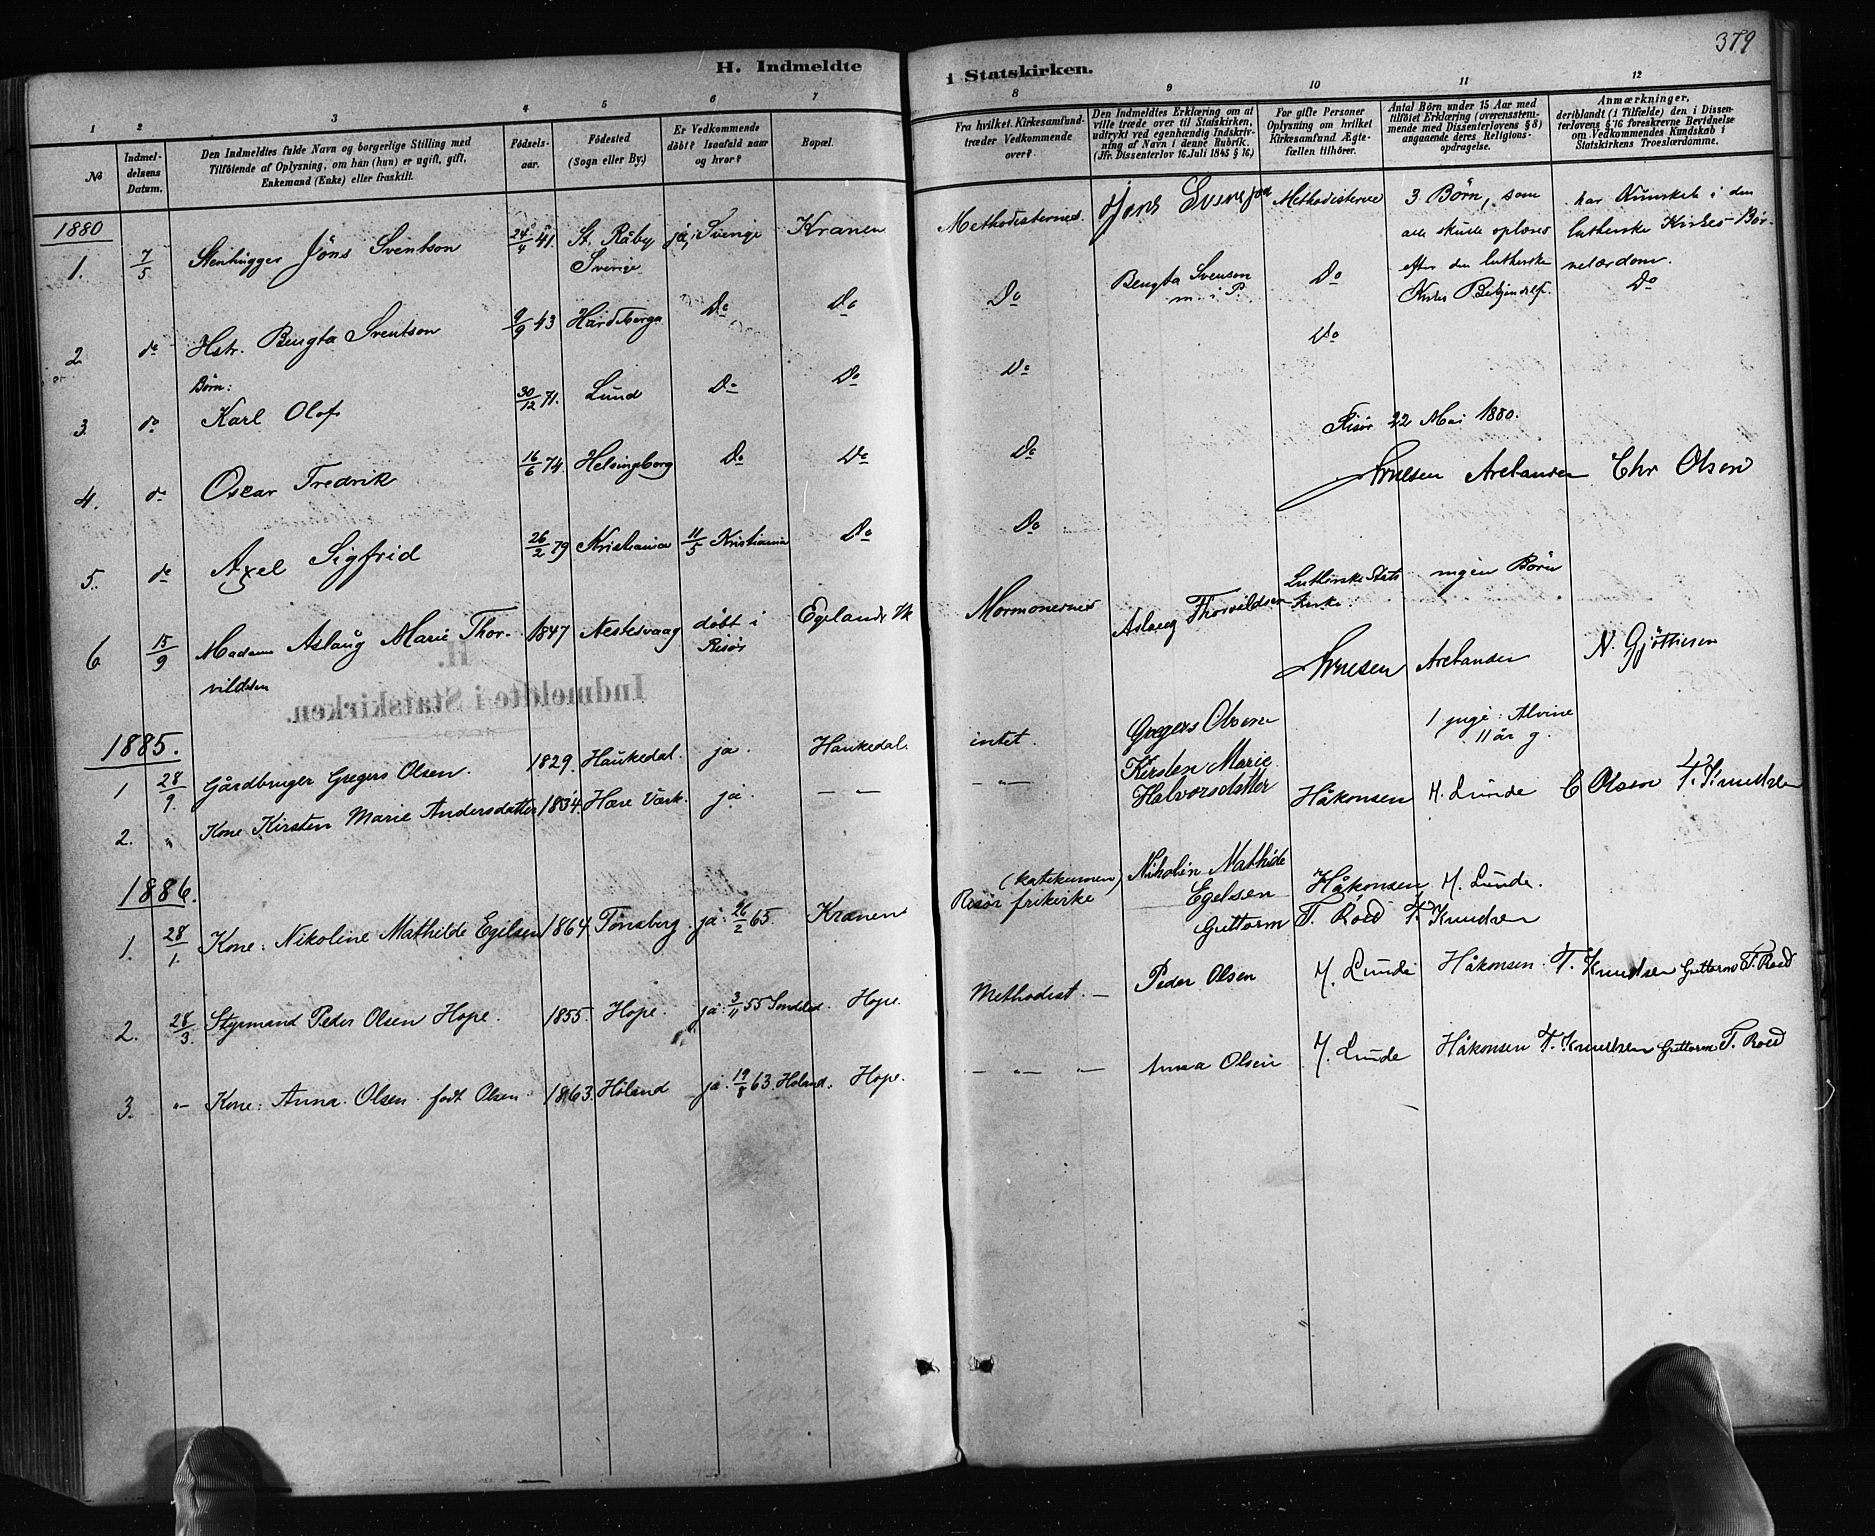 379
H. Indmeldte i Statskirken.
1 2 3 4 5 6 7 8 9 10 11 12
No
Indmel-
delsens
Datum.
Den Indmeldtes fulde Navn og borgerlige Stilling med
Tilföiende af Oplysning, om han (hun) er ugift, gift,
Enkemand (Enke) eller fraskilt.
Födsels-
aar.
Födested
(Sogn eller By.)
Er Vedkommende
döbt? Isaafald naar
og hvor?
Bopæl.
Fra hvilket Kirkesamfund
træder Vedkommende
over?
Den Indmeldtes Erklæring om at
ville træde over til Statskirken,
udtrykt ved egenhændig Indskriv-
ning af Navn i denne Rubrik.
(Jfr. Dissenterlov 16 Juli 1845 § 16.)
For gifte Personer
Oplysning om hvilket
Kirkesamfund Ægte-
fællen tilhörer.
Antal Börn under 15 Aar med
tilföiet Erklæring (overensstem-
mende med Dissenterlovens § 8)
angaaende deres Religions-
opdragelse.
Anmærkninger,
deriblandt (i Tilfælde) den i Dissen-
terlovens § 16 foreskrevne Bevidnelse
om Vedkommendes Kundskab i
Statskirkens Troeslærdomme.
1880
1. 7/5 Stenhugger Jöns Sventson 24/4 41. St. Råby, Sverige ja, i Sverige Kranen Methodisternes Methodisterne 3 Börn, som
alle skulle oplæres
efter den lutherske
Kirkes Bekjendelse.
har Kundskab i den
lutherske Kirkes Bör-
nelærdom.
2 do Hstr. Bengta Sventson 9/9 43 Hardeberga Do Do Do Bengta Svenson
m. i P. Do Do
Börn:
3. do Karl Olof 30/12 71. Lund Do Do Do Do
Risör 22 Mai 1880.
4. do Oscar Fredrik 16/6 74. Helsingborg Do Do Do
Arnesen Arctander Chr Olsen
5. do Axel Sigfrid 26/2 79 Kristiania 11/5 Kristiania Do Do
6 15/9 Madam Aslaug Marie Thor-
vildsen 1847 Nestesvaag döbt i
Risör Egelands Vk Mormonernes Aslaug Thorvildsen Lutherske Stats
Kirke. ingen Börn
Arnesen Arctander N. Gjöttesen
H.
Indmeldte i Statskirken.
1885.
1 28/9. Gårdbruger Gregers Olsen. 1829. Haukedal. ja. Haukedal. intet. Gregers Olsen 1 pige: Alvine
11 år g.
2. " Kone Kirsten Marie Andersdatter 1834. Hære Værk. ja. — — —"— Kirsten Marie
Halvorsdatter Håkonsen H. Lunde C Olsen F. Knudsen
1886.
1. 28/1. Kone: Nikoline Mathilde Egilsen 1864. Tönsberg. ja: 26/2 65. Kranen (katekumen)
Risör frikirke Nikolin Mathide
Egelsen Håkonsen H. Lunde.
Guttorm T. Röed F. Knudsen
2. 28/3. Styrmand Peder Olsen Hope. 1855. Hope. ja: 3/11 55 Söndeled. Hope. Methodist. — Peder Olsen H. Lunde Håkonsen. F. Knudsen Guttorm T. Roed
3. —"— Kone: Anna Olsen födt Olsen 1863. Höland ja: 19/8 63. Höland. Hope. — " — Anna Olsen H. Lunde Håkonsen F. Knudsen Guttorm T. Roed